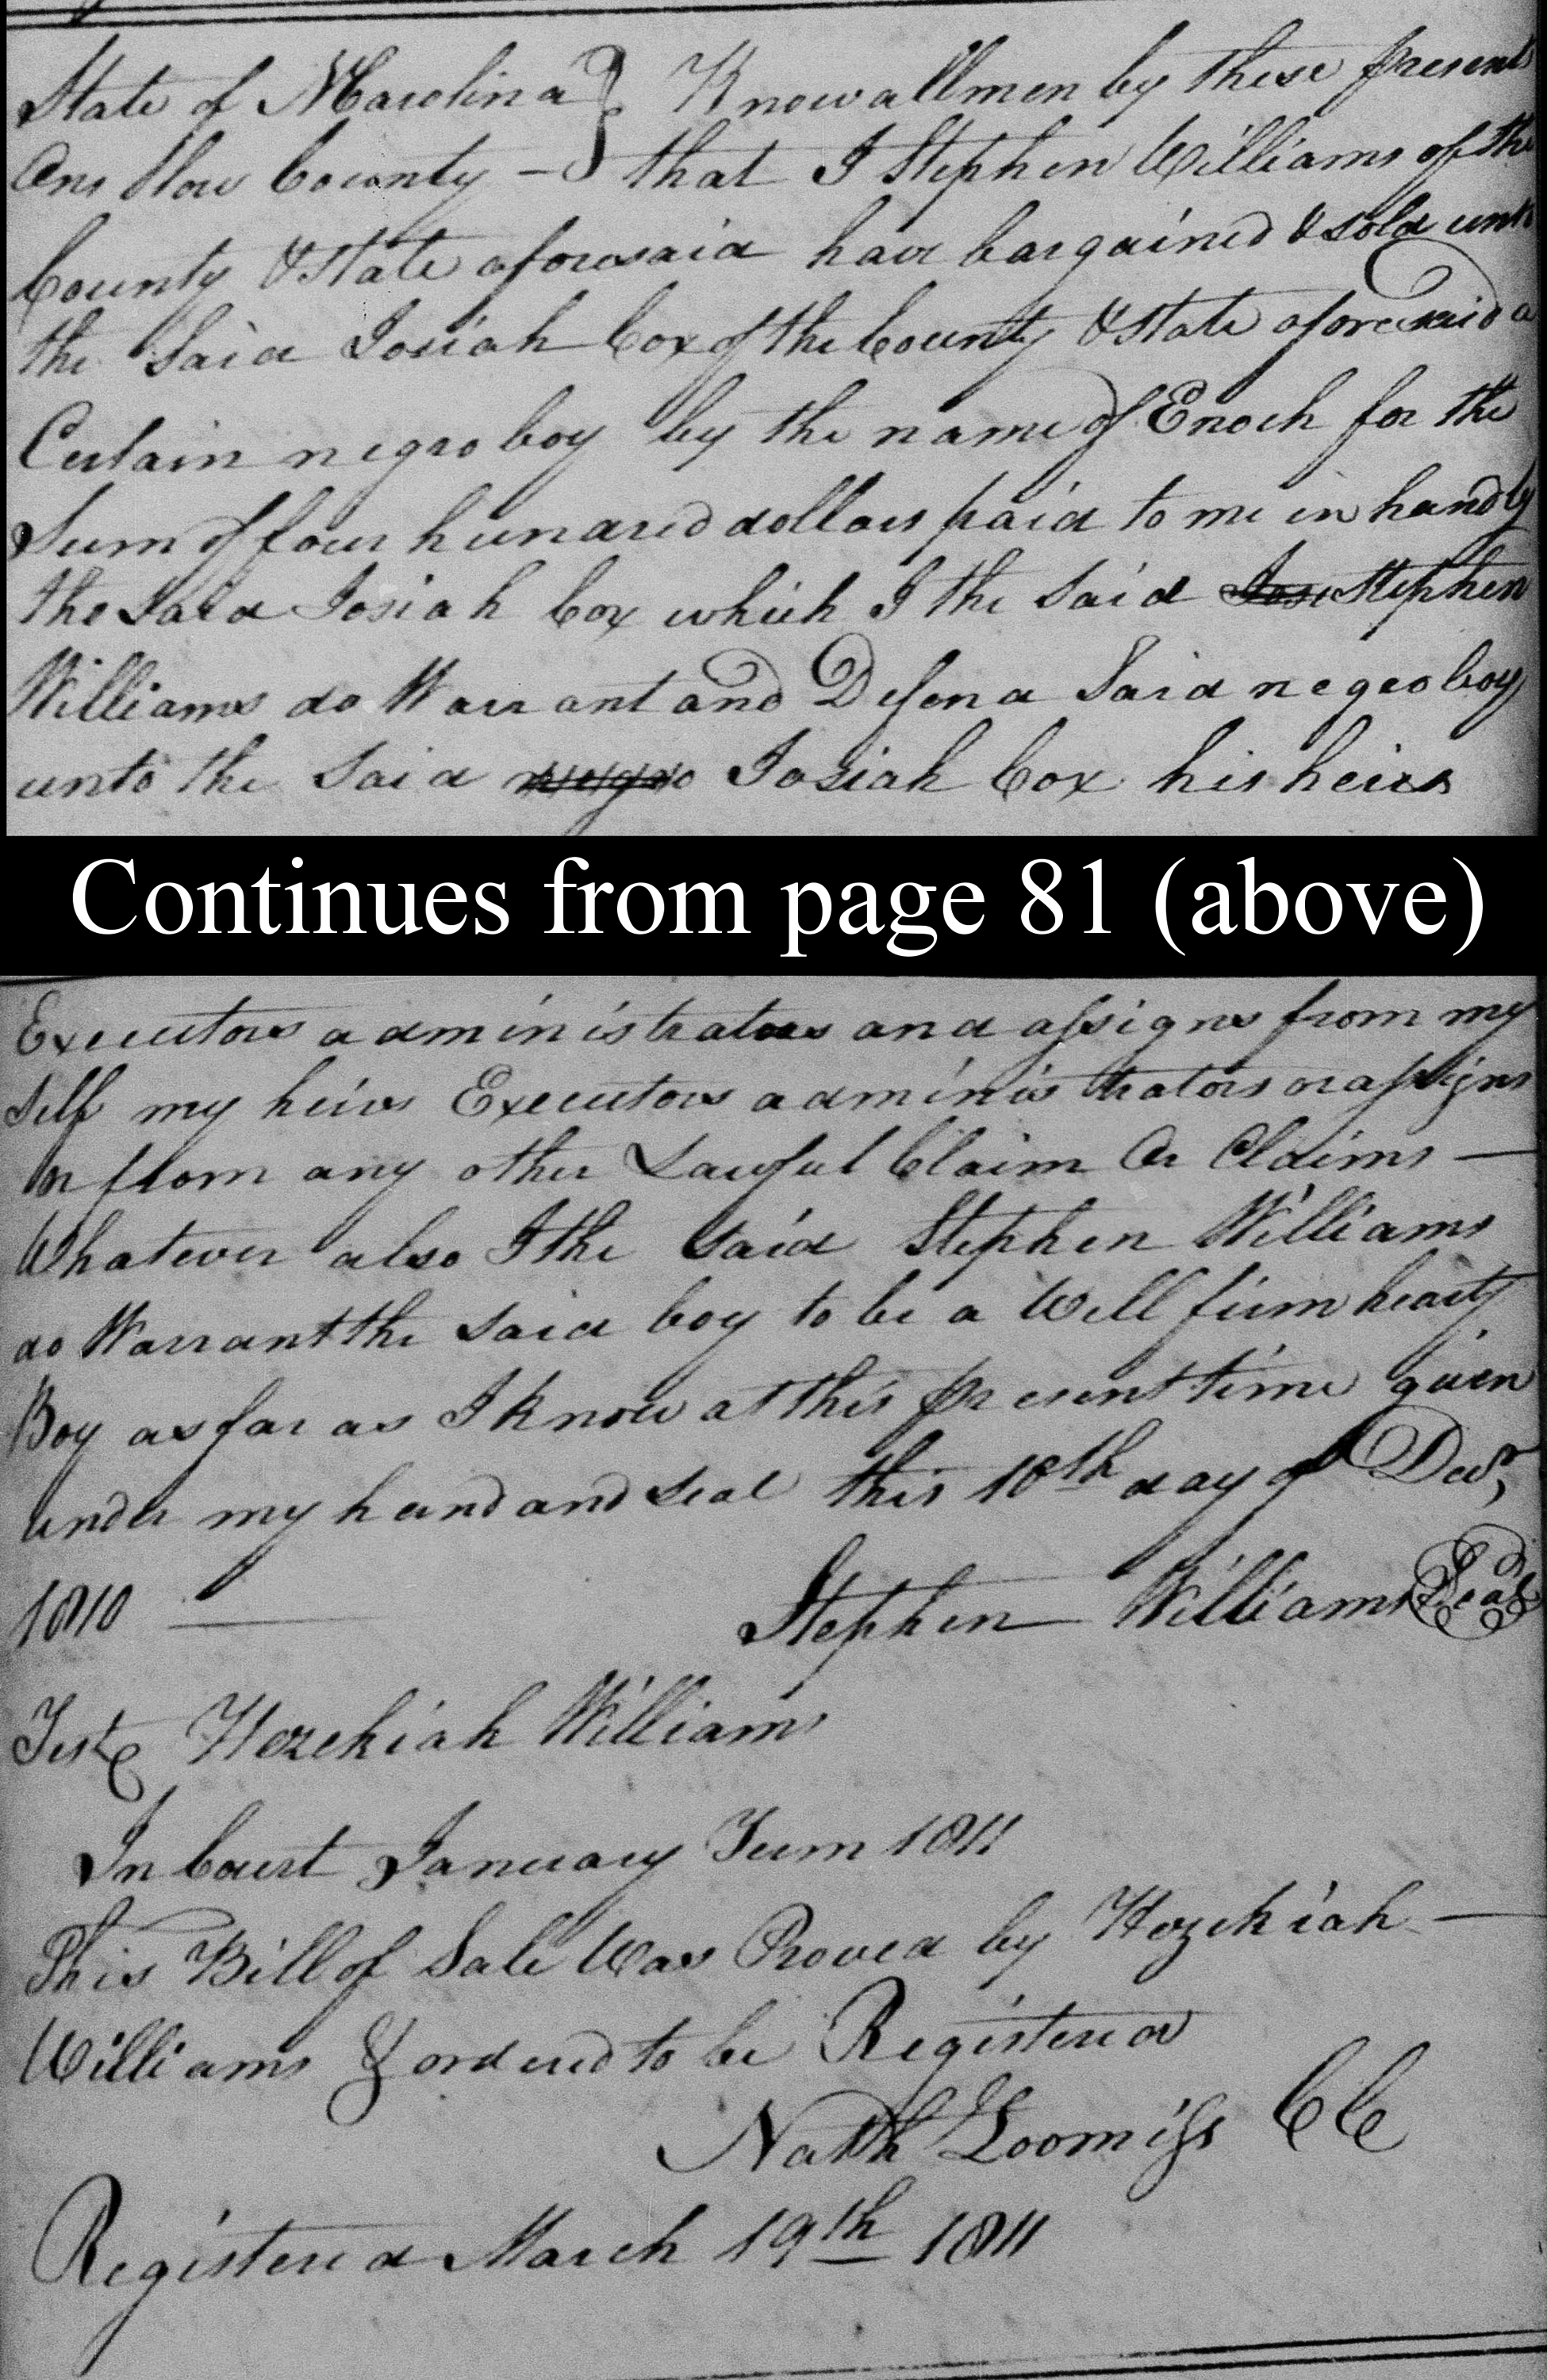 State of NCarolina } Know all men by these presents
Onslow County — } that I Stephen Williams of the
County & State aforesaid have bargained & sold unto
the Said Josiah Cox of the County & State aforesaid a
Certain negro boy by the name of Enoch for the
Sum of four hundred dollars paid to me in hand by
the Said Josiah Cox which I the Said Josi Stephen
Williams do Warrant and Defend Said negro boy
unto the Said negro Josiah Cox his heirs
Continues from page 81 (above)
Executors administrators and assigns from my
Self my heirs Executors administrators or assigns
or from any other Lawful Claim Or Claims —
Whatever also I the Said Stephen Williams
do Warrant the Said boy to be a Well firm hearty
Boy as far as I know at this present time given
under my hand and Seal this 10th day of Decr,
1810 — Stephen Williams Seal
Test Hezekiah Williams
In Court January Term 1811
This Bill of Sale Was Proved by Hezekiah —
Williams & ordered to be Registered
Nath Loomiss CC
Registered March 19th 1811